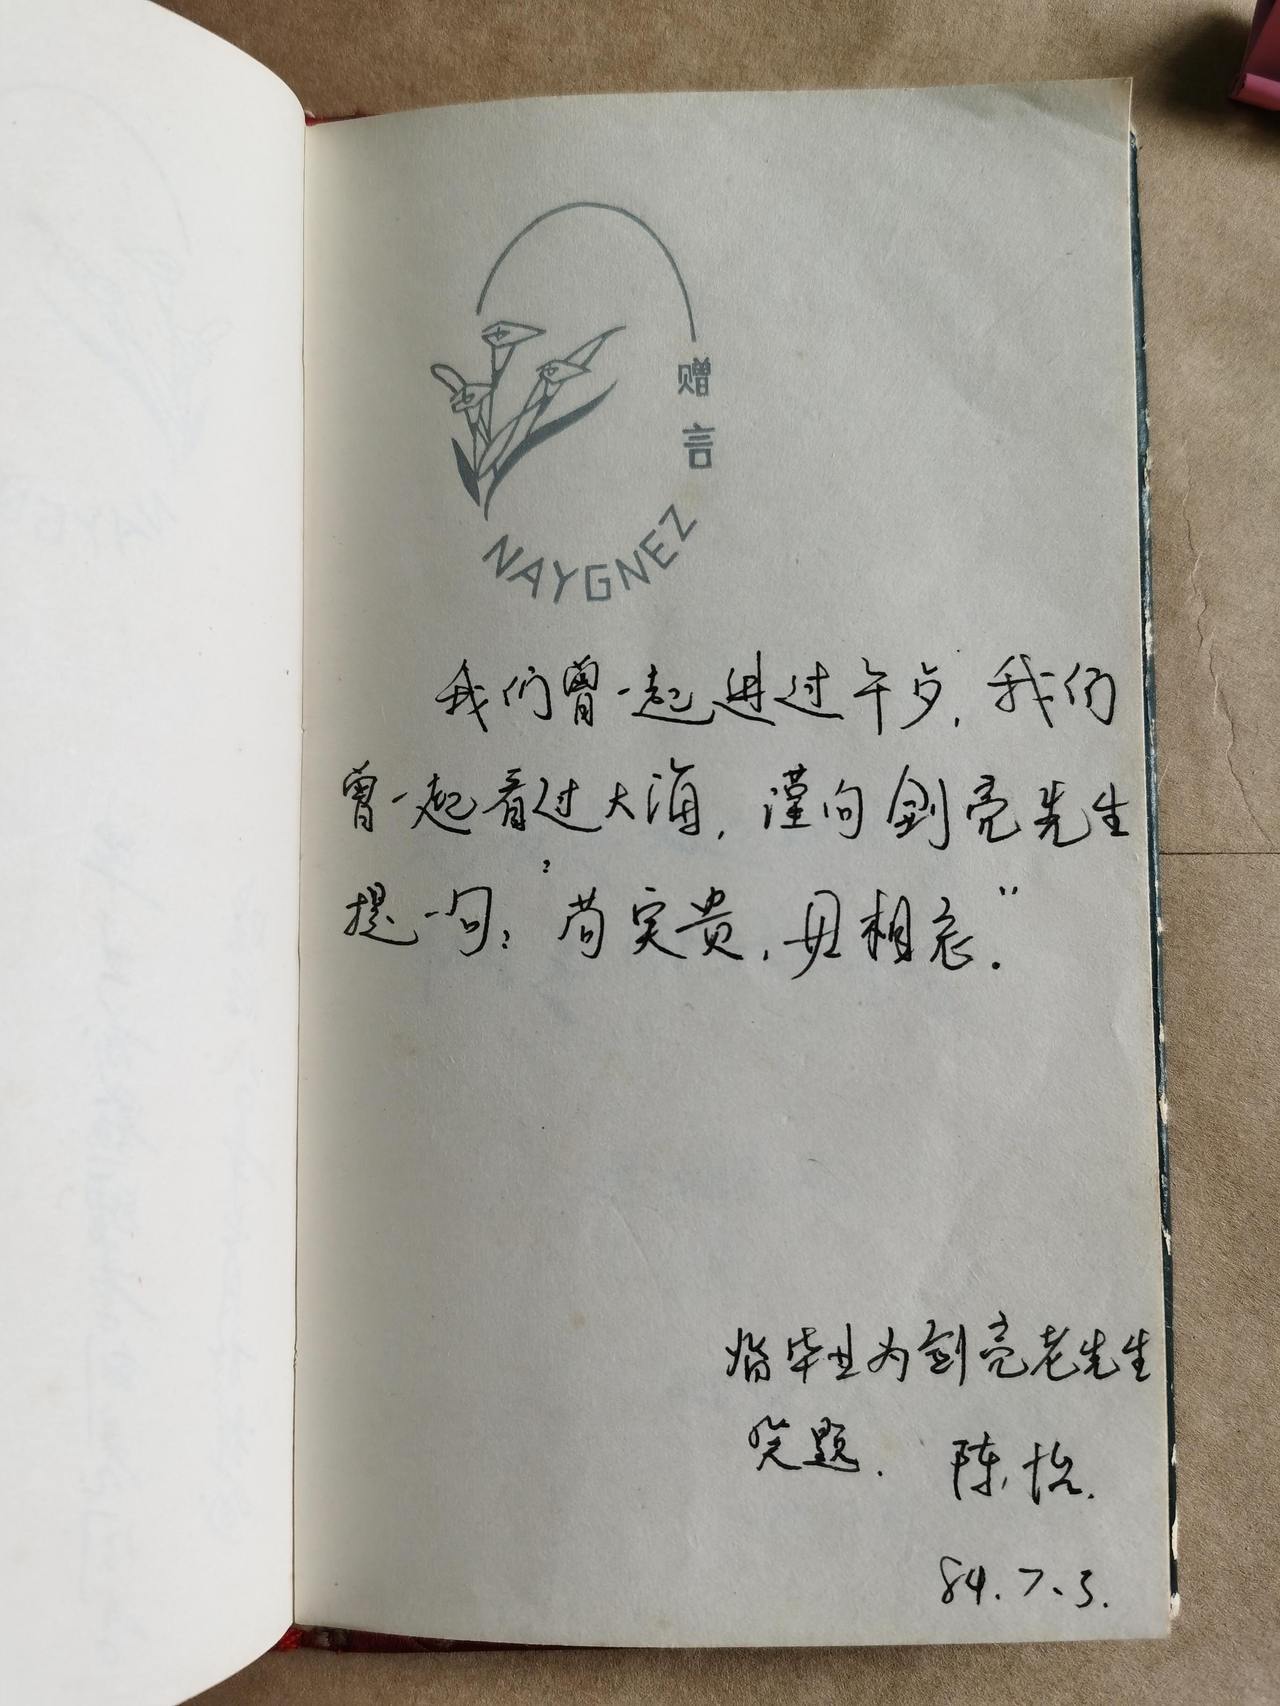 赠
言
NAYGNEZ
我们曾一起进过午点,我们
曾一起看过大海,谨向剑亮先生
提一句:"苟实贵,毋相忘".
毕业为剑亮老先生
笑题. 陈怡.
84.7.3.